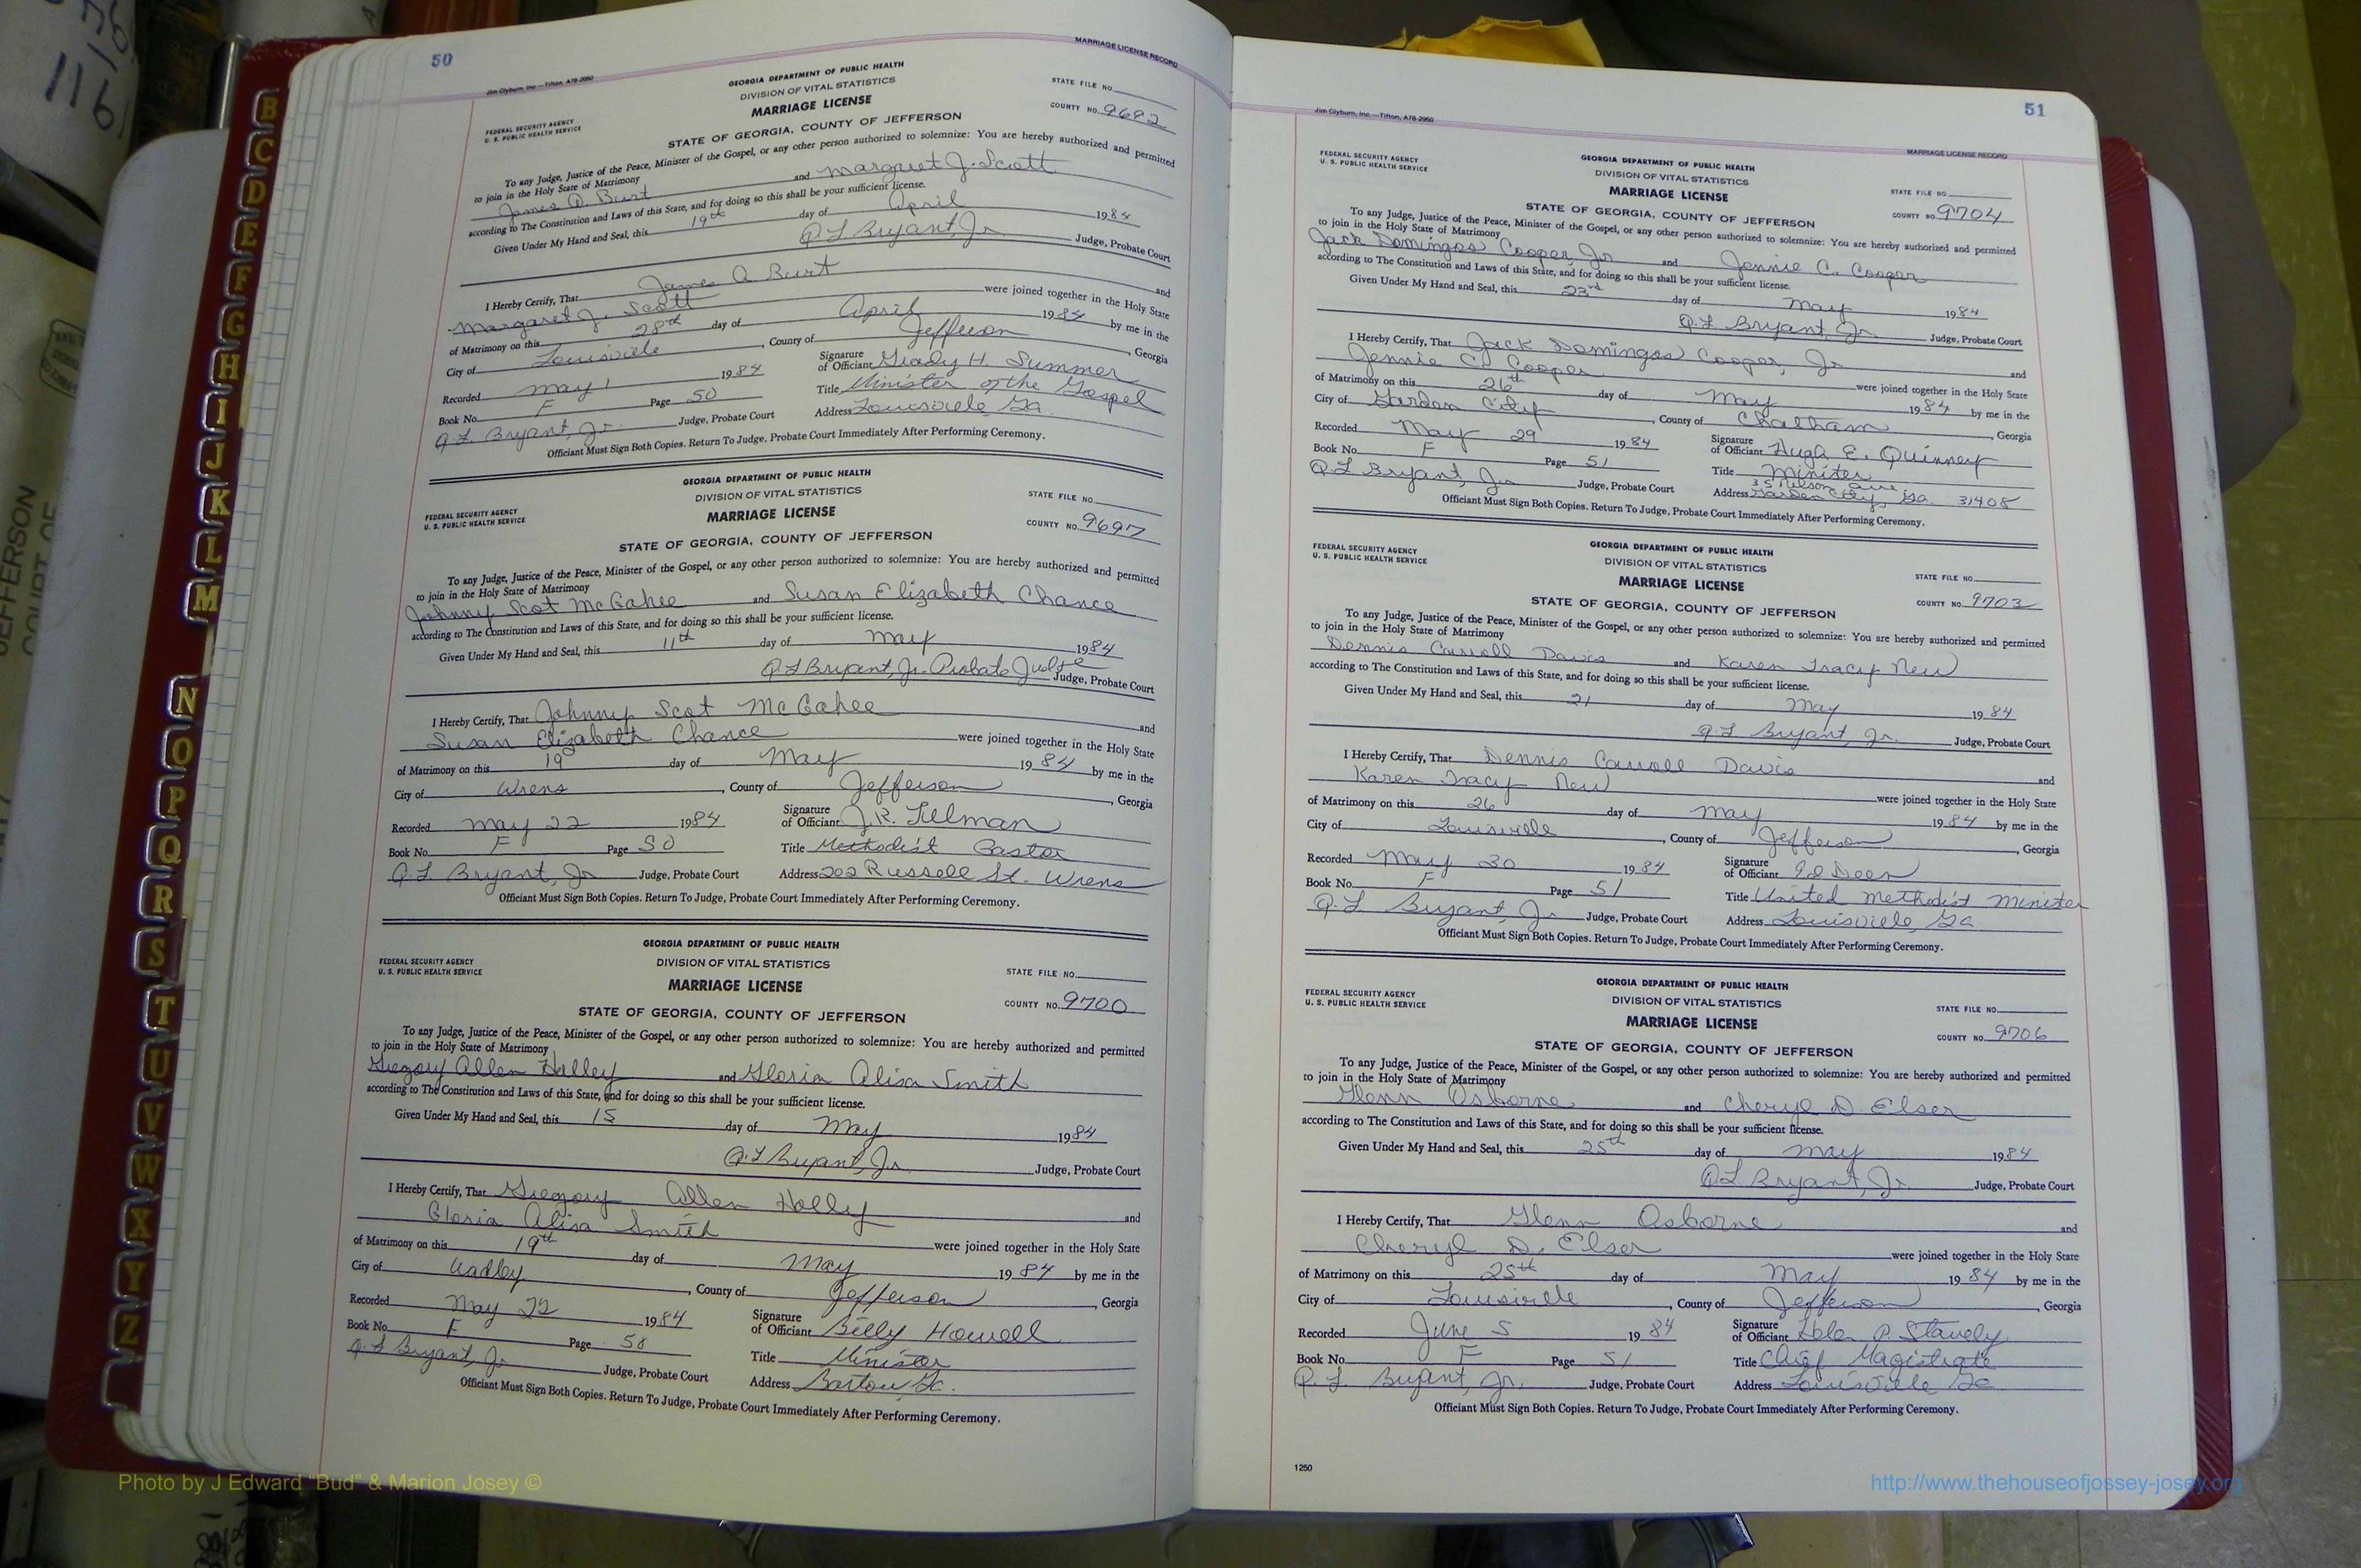 50
MARRIAGE LICENSE RECORD
Jim Clyburn, Inc.—Tifton, A78-2960
GEORGIA DEPARTMENT OF PUBLIC HEALTH
DIVISION OF VITAL STATISTICS
MARRIAGE LICENSE
FEDERAL SECURITY AGENCY
U. S. PUBLIC HEALTH SERVICE
STATE FILE NO.
COUNTY NO. 9692
STATE OF GEORGIA, COUNTY OF JEFFERSON
To any Judge, Justice of the Peace, Minister of the Gospel, or any other person authorized to solemnize: You are hereby authorized and permitted
to join in the Holy State of Matrimony
James A. Burt and Margaret J. Scott
according to The Constitution and Laws of this State, and for doing so this shall be your sufficient license.
Given Under My Hand and Seal, this 19th day of April 1984
Q L Bryant, Jr. Judge, Probate Court
I Hereby Certify, That James A Burt and
Margaret J. Scott were joined together in the Holy State
of Matrimony on this 28th day of April 1984 by me in the
City of Louisville, County of Jefferson, Georgia
Recorded May 1 1984
Signature
of Officiant Grady H. Summer
Book No. F Page 50
Title Minister of the Gospel
Q L Bryant, Jr. Judge, Probate Court
Address Louisville Ga.
Officiant Must Sign Both Copies. Return To Judge, Probate Court Immediately After Performing Ceremony.
GEORGIA DEPARTMENT OF PUBLIC HEALTH
DIVISION OF VITAL STATISTICS
MARRIAGE LICENSE
FEDERAL SECURITY AGENCY
U. S. PUBLIC HEALTH SERVICE
STATE FILE NO.
COUNTY NO. 9697
STATE OF GEORGIA, COUNTY OF JEFFERSON
To any Judge, Justice of the Peace, Minister of the Gospel, or any other person authorized to solemnize: You are hereby authorized and permitted
to join in the Holy State of Matrimony
Johnny Scot McGahee and Susan Elizabeth Chance
according to The Constitution and Laws of this State, and for doing so this shall be your sufficient license.
Given Under My Hand and Seal, this 11th day of May 1984
Q L Bryant, Jr. Probate Judge Judge, Probate Court
I Hereby Certify, That Johnny Scot McGahee and
Susan Elizabeth Chance were joined together in the Holy State
of Matrimony on this 19 day of May 1984 by me in the
City of Wrens, County of Jefferson, Georgia
Recorded May 22 1984
Signature
of Officiant J.R. Tilman
Book No. F Page 50
Title Methodist Pastor
Q. L Bryant, Jr Judge, Probate Court
Address 202 Russell St. Wrens
Officiant Must Sign Both Copies. Return To Judge, Probate Court Immediately After Performing Ceremony.
GEORGIA DEPARTMENT OF PUBLIC HEALTH
DIVISION OF VITAL STATISTICS
MARRIAGE LICENSE
FEDERAL SECURITY AGENCY
U. S. PUBLIC HEALTH SERVICE
STATE FILE NO.
COUNTY NO. 9700
STATE OF GEORGIA, COUNTY OF JEFFERSON
To any Judge, Justice of the Peace, Minister of the Gospel, or any other person authorized to solemnize: You are hereby authorized and permitted
to join in the Holy State of Matrimony
Gregory Allen Holley and Gloria Alisa Smith
according to The Constitution and Laws of this State, and for doing so this shall be your sufficient license.
Given Under My Hand and Seal, this 15 day of May 1984
Q. L Bryant, Jr. Judge, Probate Court
I Hereby Certify, That Gregory Allen Holley and
Gloria Alisa Smith were joined together in the Holy State
of Matrimony on this 19th day of May 1984 by me in the
City of Wadley, County of Jefferson, Georgia
Recorded May 22 1984
Signature
of Officiant Billy Howell
Book No. F Page 50
Title Minister
Q. L Bryant, Jr Judge, Probate Court
Address Bartow Ga.
Officiant Must Sign Both Copies. Return To Judge, Probate Court Immediately After Performing Ceremony.
51
Jim Clyburn, Inc.—Tifton, A78-2960
MARRIAGE LICENSE RECORD
FEDERAL SECURITY AGENCY
U. S. PUBLIC HEALTH SERVICE
GEORGIA DEPARTMENT OF PUBLIC HEALTH
DIVISION OF VITAL STATISTICS
MARRIAGE LICENSE
STATE FILE NO.
COUNTY NO. 9704
STATE OF GEORGIA, COUNTY OF JEFFERSON
To any Judge, Justice of the Peace, Minister of the Gospel, or any other person authorized to solemnize: You are hereby authorized and permitted
to join in the Holy State of Matrimony
Jack Domingos Cooper, Jr and Jennie C. Cooper
according to The Constitution and Laws of this State, and for doing so this shall be your sufficient license.
Given Under My Hand and Seal, this 23rd day of May 1984
Q. L Bryant, Jr. Judge, Probate Court
I Hereby Certify, That Jack Domingos Cooper, Jr and
Jennie C. Cooper were joined together in the Holy State
of Matrimony on this 26th day of May 1984 by me in the
City of Garden City, County of Chatham, Georgia
Recorded May 29 1984
Signature
of Officiant Hugh E. Quinney
Book No. F Page 51
Title Minister
Q. L Bryant, Jr Judge, Probate Court
35 Nelson Ave.
Address Garden City, Ga. 31408
Officiant Must Sign Both Copies. Return To Judge, Probate Court Immediately After Performing Ceremony.
FEDERAL SECURITY AGENCY
U. S. PUBLIC HEALTH SERVICE
GEORGIA DEPARTMENT OF PUBLIC HEALTH
DIVISION OF VITAL STATISTICS
MARRIAGE LICENSE
STATE FILE NO.
COUNTY NO. 9703
STATE OF GEORGIA, COUNTY OF JEFFERSON
To any Judge, Justice of the Peace, Minister of the Gospel, or any other person authorized to solemnize: You are hereby authorized and permitted
to join in the Holy State of Matrimony
Dennis Carroll Davis and Karen Tracy New
according to The Constitution and Laws of this State, and for doing so this shall be your sufficient license.
Given Under My Hand and Seal, this 21 day of May 1984
Q. L Bryant, Jr. Judge, Probate Court
I Hereby Certify, That Dennis Carroll Davis and
Karen Tracy New were joined together in the Holy State
of Matrimony on this 26 day of May 1984 by me in the
City of Louisville, County of Jefferson, Georgia
Recorded May 30 1984
Signature
of Officiant Ed Deen
Book No. F Page 51
Title United Methodist Minister
Q. L Bryant, Jr. Judge, Probate Court
Address Louisville, Ga
Officiant Must Sign Both Copies. Return To Judge, Probate Court Immediately After Performing Ceremony.
FEDERAL SECURITY AGENCY
U. S. PUBLIC HEALTH SERVICE
GEORGIA DEPARTMENT OF PUBLIC HEALTH
DIVISION OF VITAL STATISTICS
MARRIAGE LICENSE
STATE FILE NO.
COUNTY NO. 9706
STATE OF GEORGIA, COUNTY OF JEFFERSON
To any Judge, Justice of the Peace, Minister of the Gospel, or any other person authorized to solemnize: You are hereby authorized and permitted
to join in the Holy State of Matrimony
Glenn Osborne and Cheryl D. Elser
according to The Constitution and Laws of this State, and for doing so this shall be your sufficient license.
Given Under My Hand and Seal, this 25th day of May 1984
Q L Bryant, Jr. Judge, Probate Court
I Hereby Certify, That Glenn Osborne and
Cheryl D. Elser were joined together in the Holy State
of Matrimony on this 25th day of May 1984 by me in the
City of Louisville, County of Jefferson, Georgia
Recorded June 5 1984
Signature
of Officiant P. Stavely
Book No. F Page 51
Title Chief Magistrate
Q. L. Bryant, Jr. Judge, Probate Court
Address Louisville Ga
Officiant Must Sign Both Copies. Return To Judge, Probate Court Immediately After Performing Ceremony.
1250
B
C
D
E
F
G
H
I
J
K
L
M
N
O
P
Q
R
S
T
U
V
W
X
Y
Z
JEFFERSON
COURT OF
116
Photo by J Edward "Bud" & Marion Josey ©
http://www.thehouseofjossey-josey.org